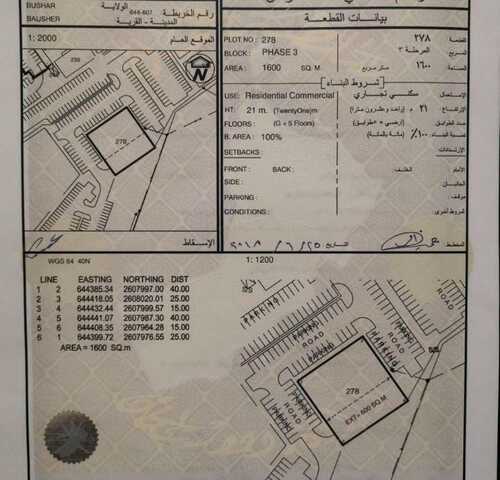 BUSHAR
الولاية
BAUSHER
644-607
رقم الخريطة
المدينة - القرية
1: 2000
الموقع العام
N
278
بيانات القطعة
PLOT NO: 278
٢٧٨
القطعة
BLOCK: PHASE 3
المرحلة ٣
المربع
AREA: 1600 SQ. M
متر مربع
١٦٠٠
المساحة
شروط البناء
USE: Residential Commercial
سكني تجاري
الاستعمال
HT: 21 m. (TwentyOne)m
٢١ م
الارتفاع
FLOORS: (G + 5 Floors)
عدد الطوابق
B. AREA: 100%
٪١٠٠ (مائة بالمائة)
نسبة البناء
SETBACKS:
الارتدادات
FRONT: BACK:
الخلف
الأمام
SIDE:
الجانبان
PARKING:
موقف
CONDITIONS:
شروط أخرى
المخطط
الإسقاط
WGS 84 40N
1: 1200
LINE EASTING NORTHING DIST
1 2 644385.34 2607997.00 40.00
2 3 644418.05 2608020.01 25.00
3 4 644432.44 2607999.57 15.00
4 5 644441.07 2607987.30 40.00
5 6 644408.35 2607964.28 15.00
6 1 644399.72 2607976.55 25.00
AREA = 1600 SQ.m
PARKING
PARKING
ROAD
ROAD
PARKING
ROAD
PARKING
ROAD
278
EXT= 600 SQ.M